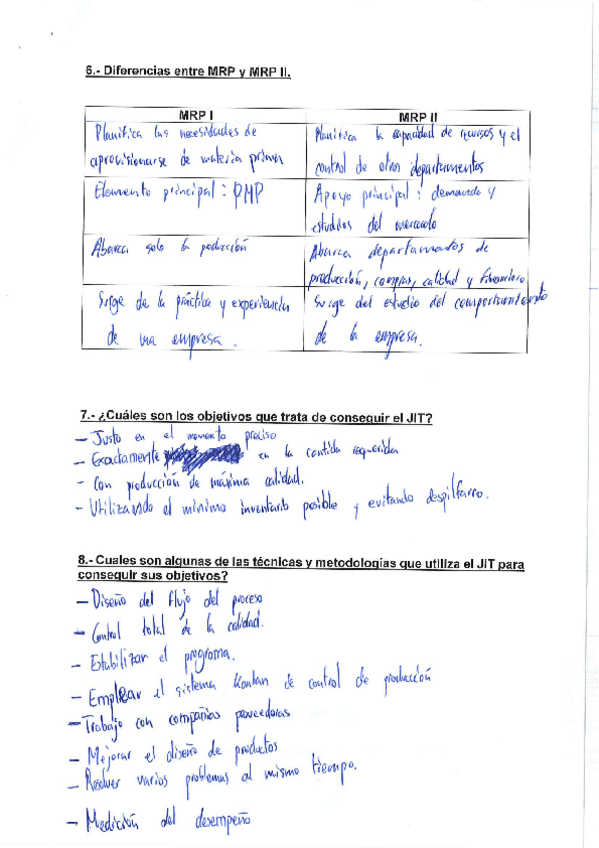 6.- Diferencias entre MRP y MRP II.
MRP I
MRP II
Planifica las necesidades de
aprovisionarse de materia prima
Planifica la capacidad de recursos y el
control de otros departamentos
Elemento principal : PMP
Apoyo principal : demanda y
estudios del mercado
Abarca solo la producción
Abarca departamentos de
producción, compras, calidad y financiero
Surge de la práctica y experiencia
de una empresa.
Surge del estudio del comportamiento
de la empresa.
7.- ¿Cuáles son los objetivos que trata de conseguir el JIT?
- Justo en el momento preciso
- Exactamente en la cantida requerida
- Con producción de máxima calidad.
- Utilizando el mínimo inventario posible y evitando despilfarro.
8.- Cuales son algunas de las técnicas y metodologías que utiliza el JIT para
conseguir sus objetivos?
- Diseño del flujo del proceso
- Control total de la calidad.
- Estabilizar el programa.
- Emplear el sistema Kanban de control de producción
- Trabajo con compañias proveedoras
- Mejorar el diseño de productos
- Resolver varios problemas al mismo tiempo.
- Medición del desempeño